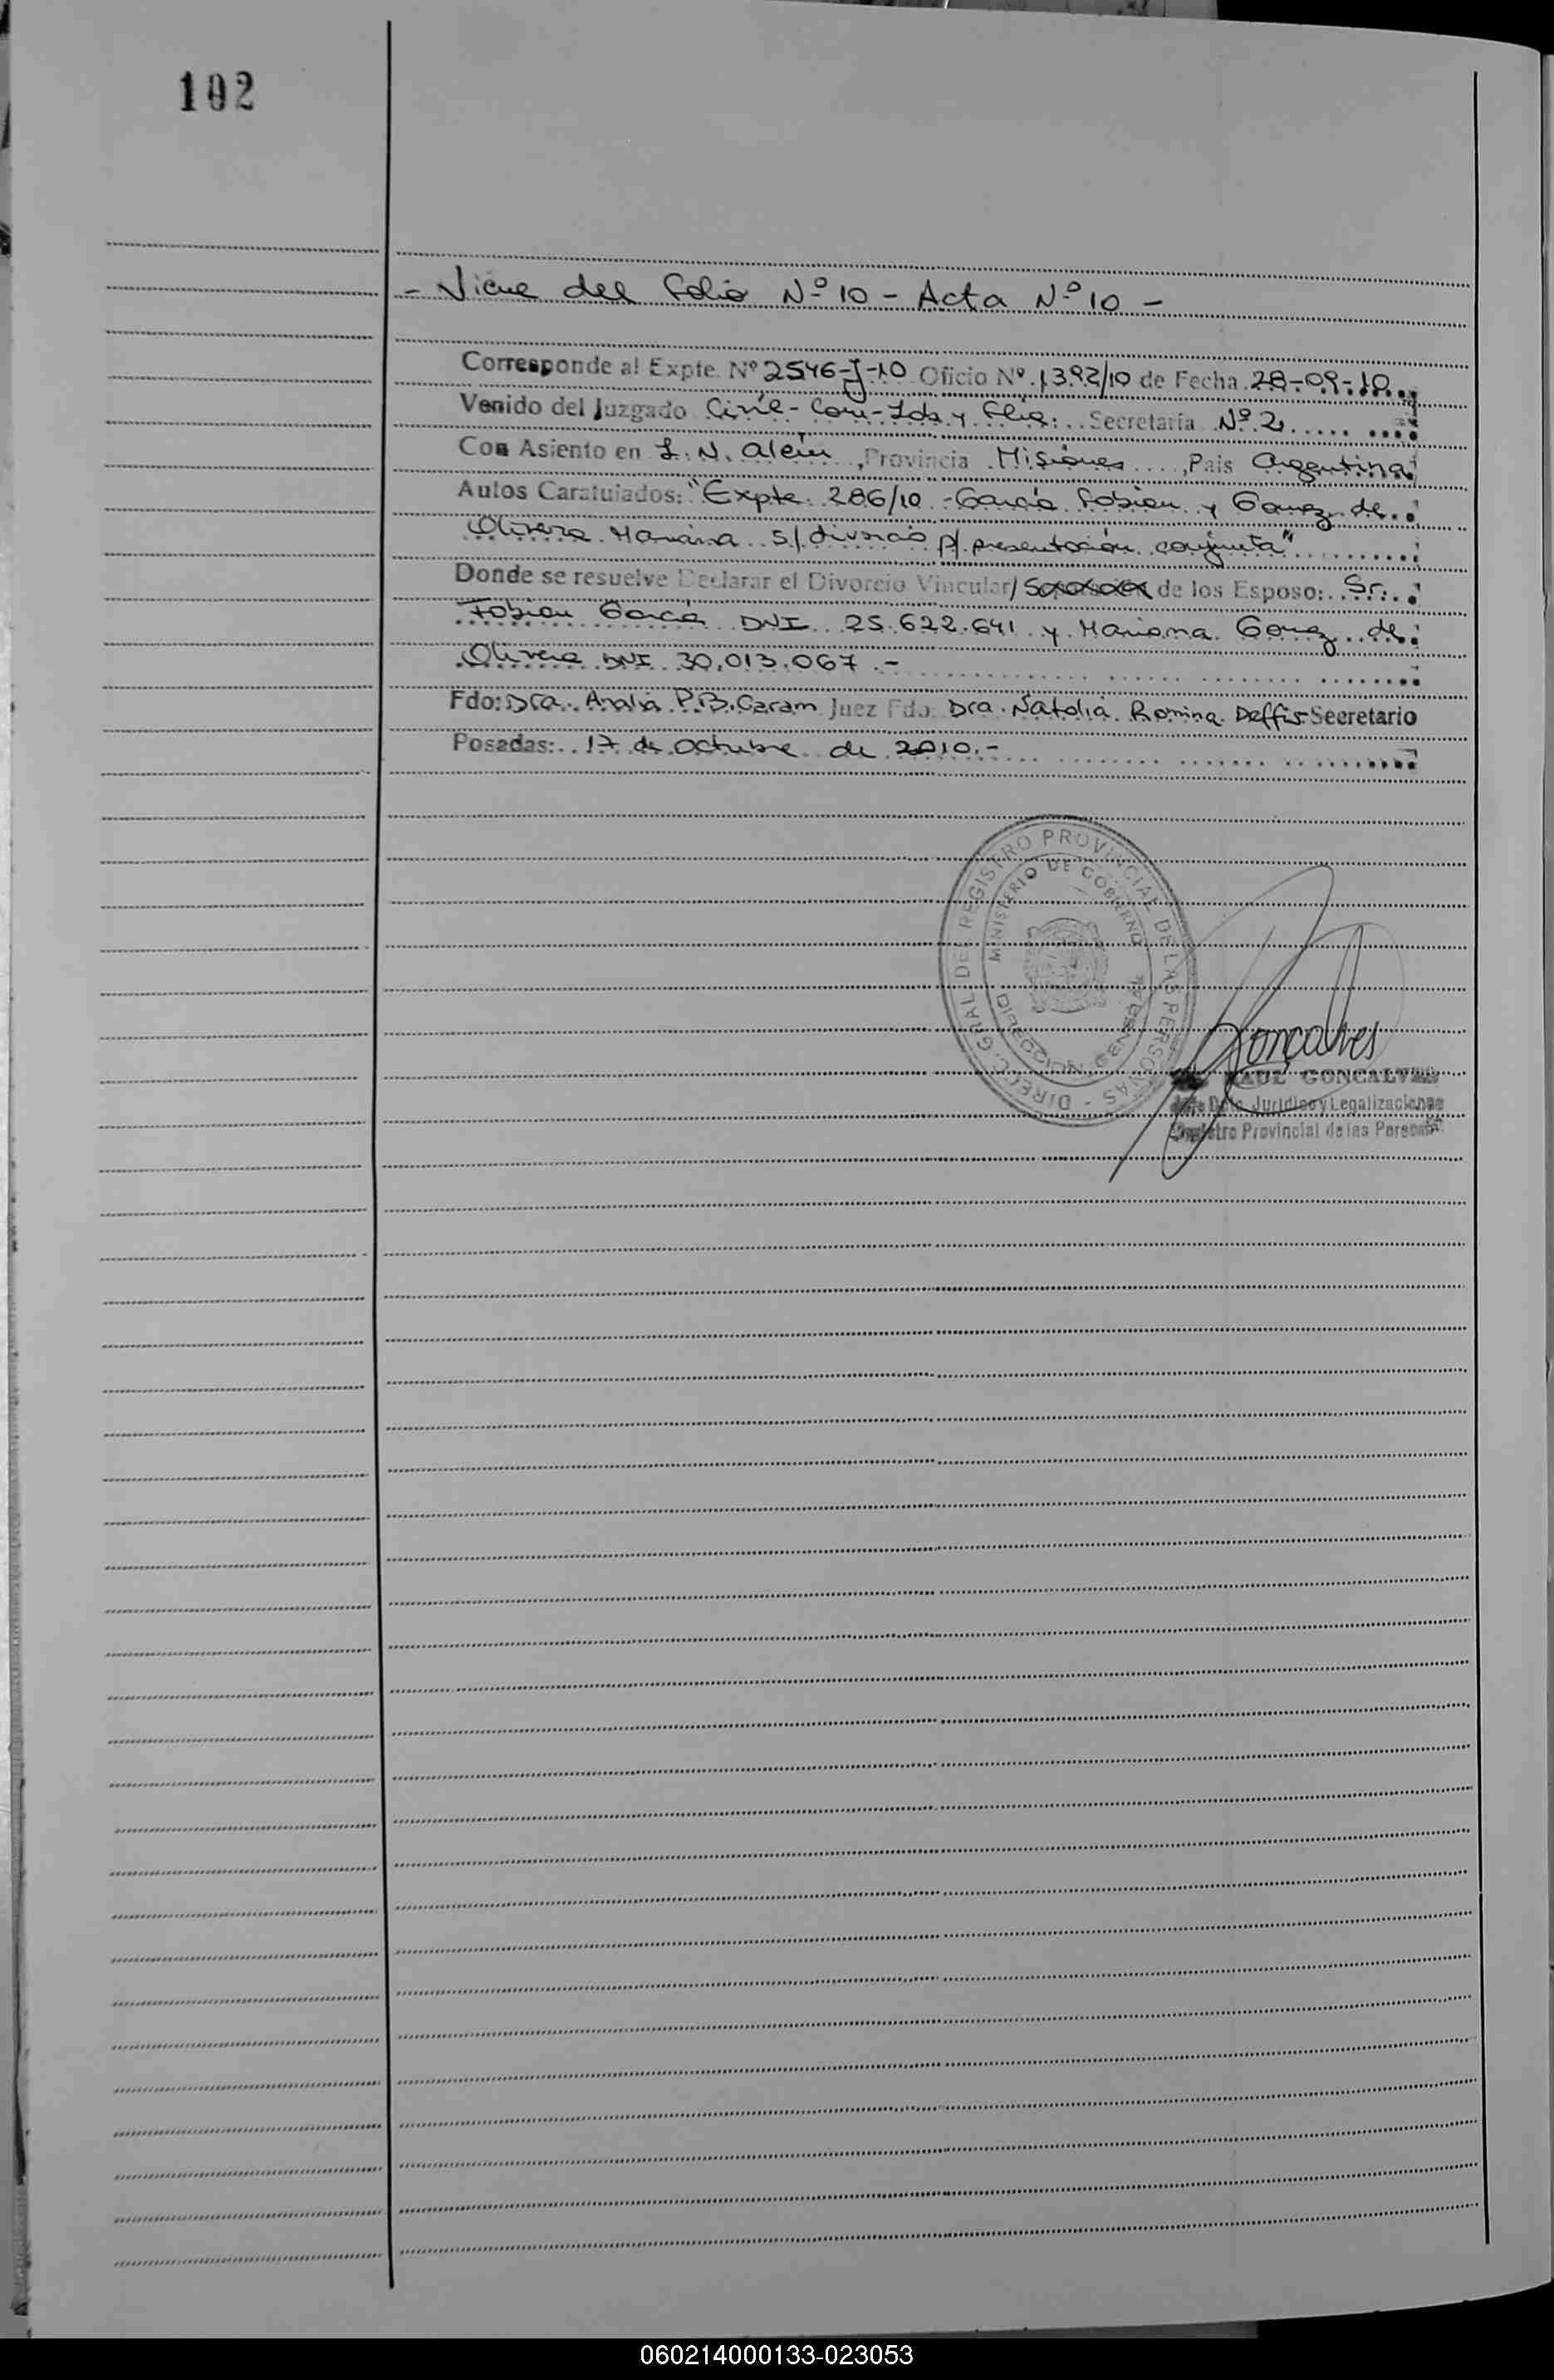 102
- Viene del folio Nº 10 - Acta Nº 10 -
Corresponde al Expte. Nº 2546-J-10 Oficio Nº 1392/10 de Fecha 28-09-10
Venido del Juzgado Civil - Com - Lab y Flia. Secretaria Nº 2
Con Asiento en L. N. Alem, Provincia Misiones, Pais Argentina
Autos Caratulados: "Expte. 286/10 - García Fabian y Gomez de
Olivera Mariana s/ divorcio p/ presentación conjunta"
Donde se resuelve Declarar el Divorcio Vincular/ de los Esposo: Sr.
Fabian García DNI 25.622.641 y Mariana Gomez de
Olivera DNI 30.013.067.-
Fdo: Dra. Analia P.B. Caram Juez Fdo: Dra. Natalia Romina Deffis Secretario
Posadas: 17 de Octubre de 2010.-
DIRECC. GRAL DEL REGISTRO PROVINCIAL DE LAS PERSONAS
MINISTERIO DE GOBIERNO
Goncalves
RAUL GONCALVES
Jefe Dpto. Juridico y Legalizaciones
Registro Provincial de las Personas
060214000133-023053